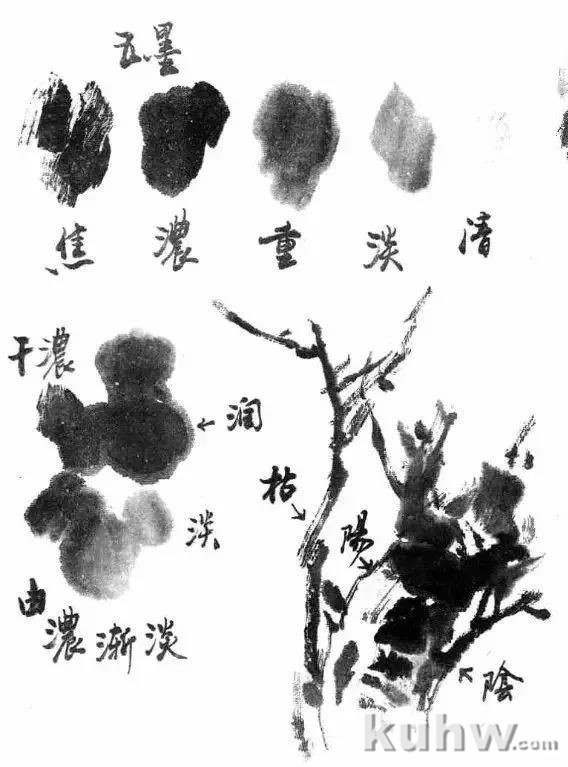 五墨
焦 濃 重 淡 清
干濃
润
淡
由濃漸淡
枯
陽
陰
kuhw.com